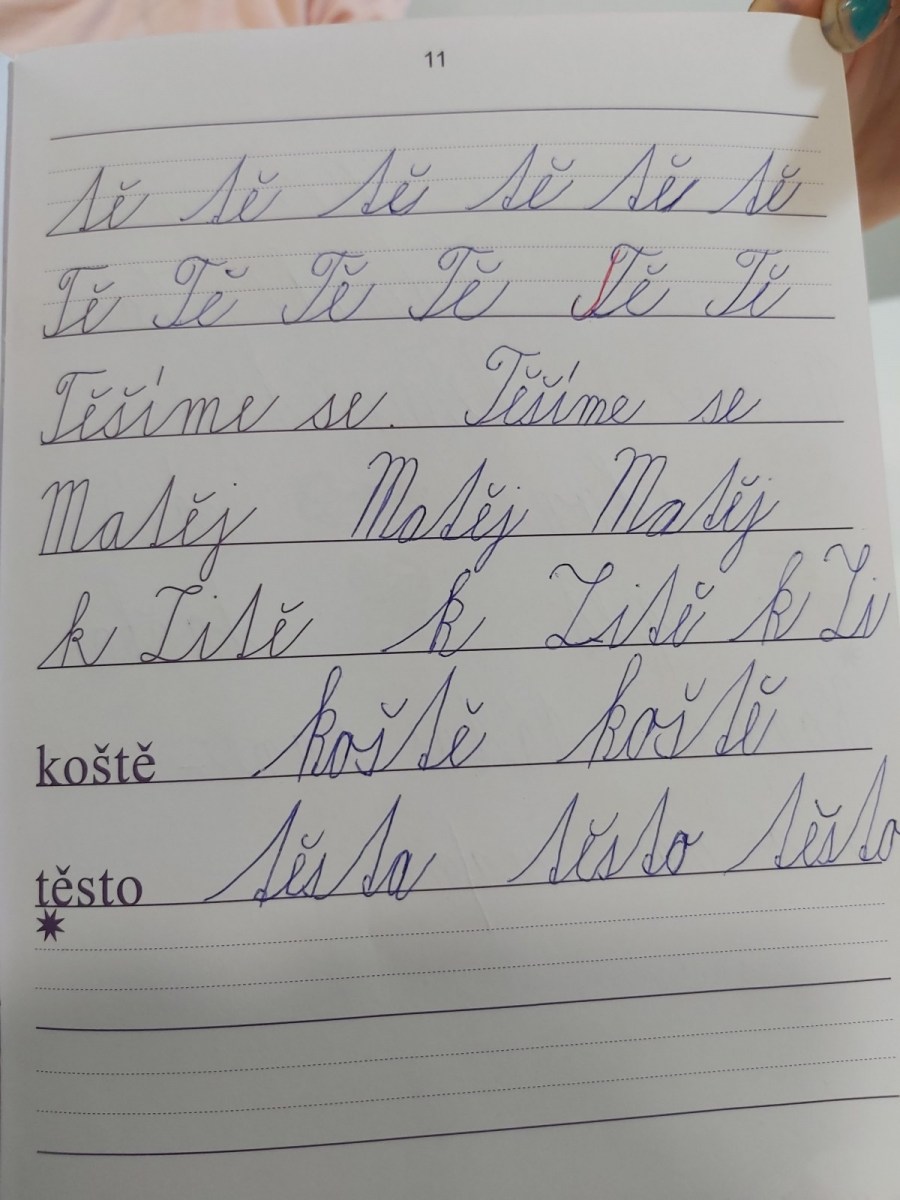 11
tě tě tě tě tě tě
Tě Tě Tě Tě Tě Tě
Těšíme se. Těšíme se
Matěj Matěj Matěj
k Zitě k Zitě k Zi
koště koště koště
těsto těsta těsto těsto